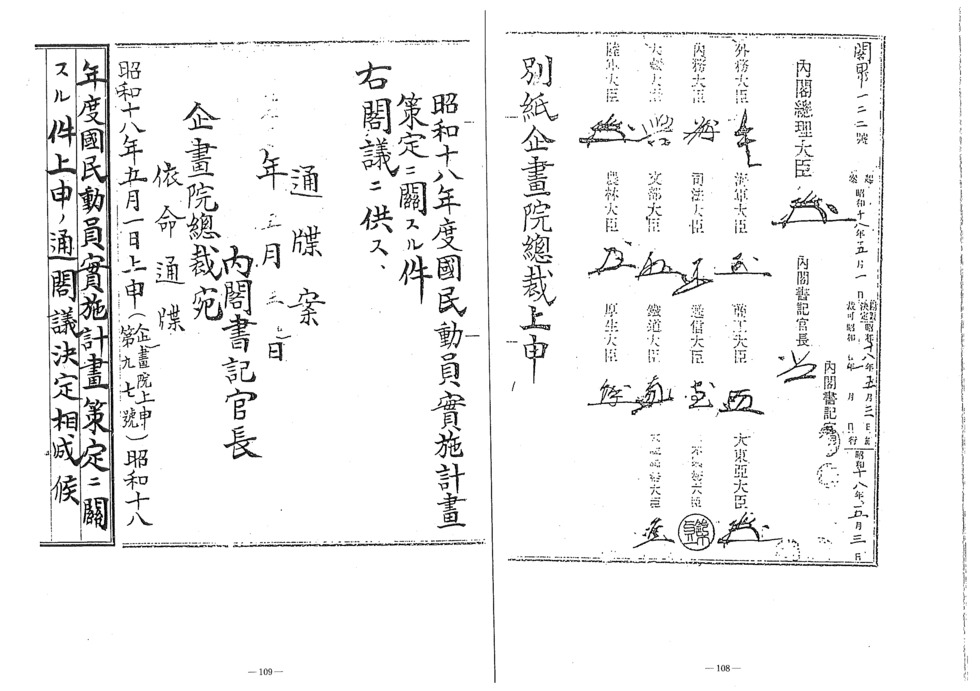 閣甲第一二二號
起案 昭和十八年五月一日
閣議決定 昭和十八年五月三日
裁可 昭和 年 月 日
昭和十八年五月三日
內閣總理大臣
內閣書記官長
內閣書記官
外務大臣
海軍大臣
商工大臣
大東亞大臣
內務大臣
司法大臣
遞信大臣
大藏大臣
文部大臣
鐵道大臣
陸軍大臣
農林大臣
厚生大臣
別紙企畫院總裁上申
—108—
昭和十八年度國民動員實施計畫
策定ニ關スル件
右閣議ニ供ス、
通牒案
年五月三日
內閣書記官長
企畫院總裁宛
依命通牒
昭和十八年五月一日上申(企畫院上申第九七號)昭和十八
年度國民動員實施計畫策定ニ關
スル件上申ノ通閣議決定相成候
—109—